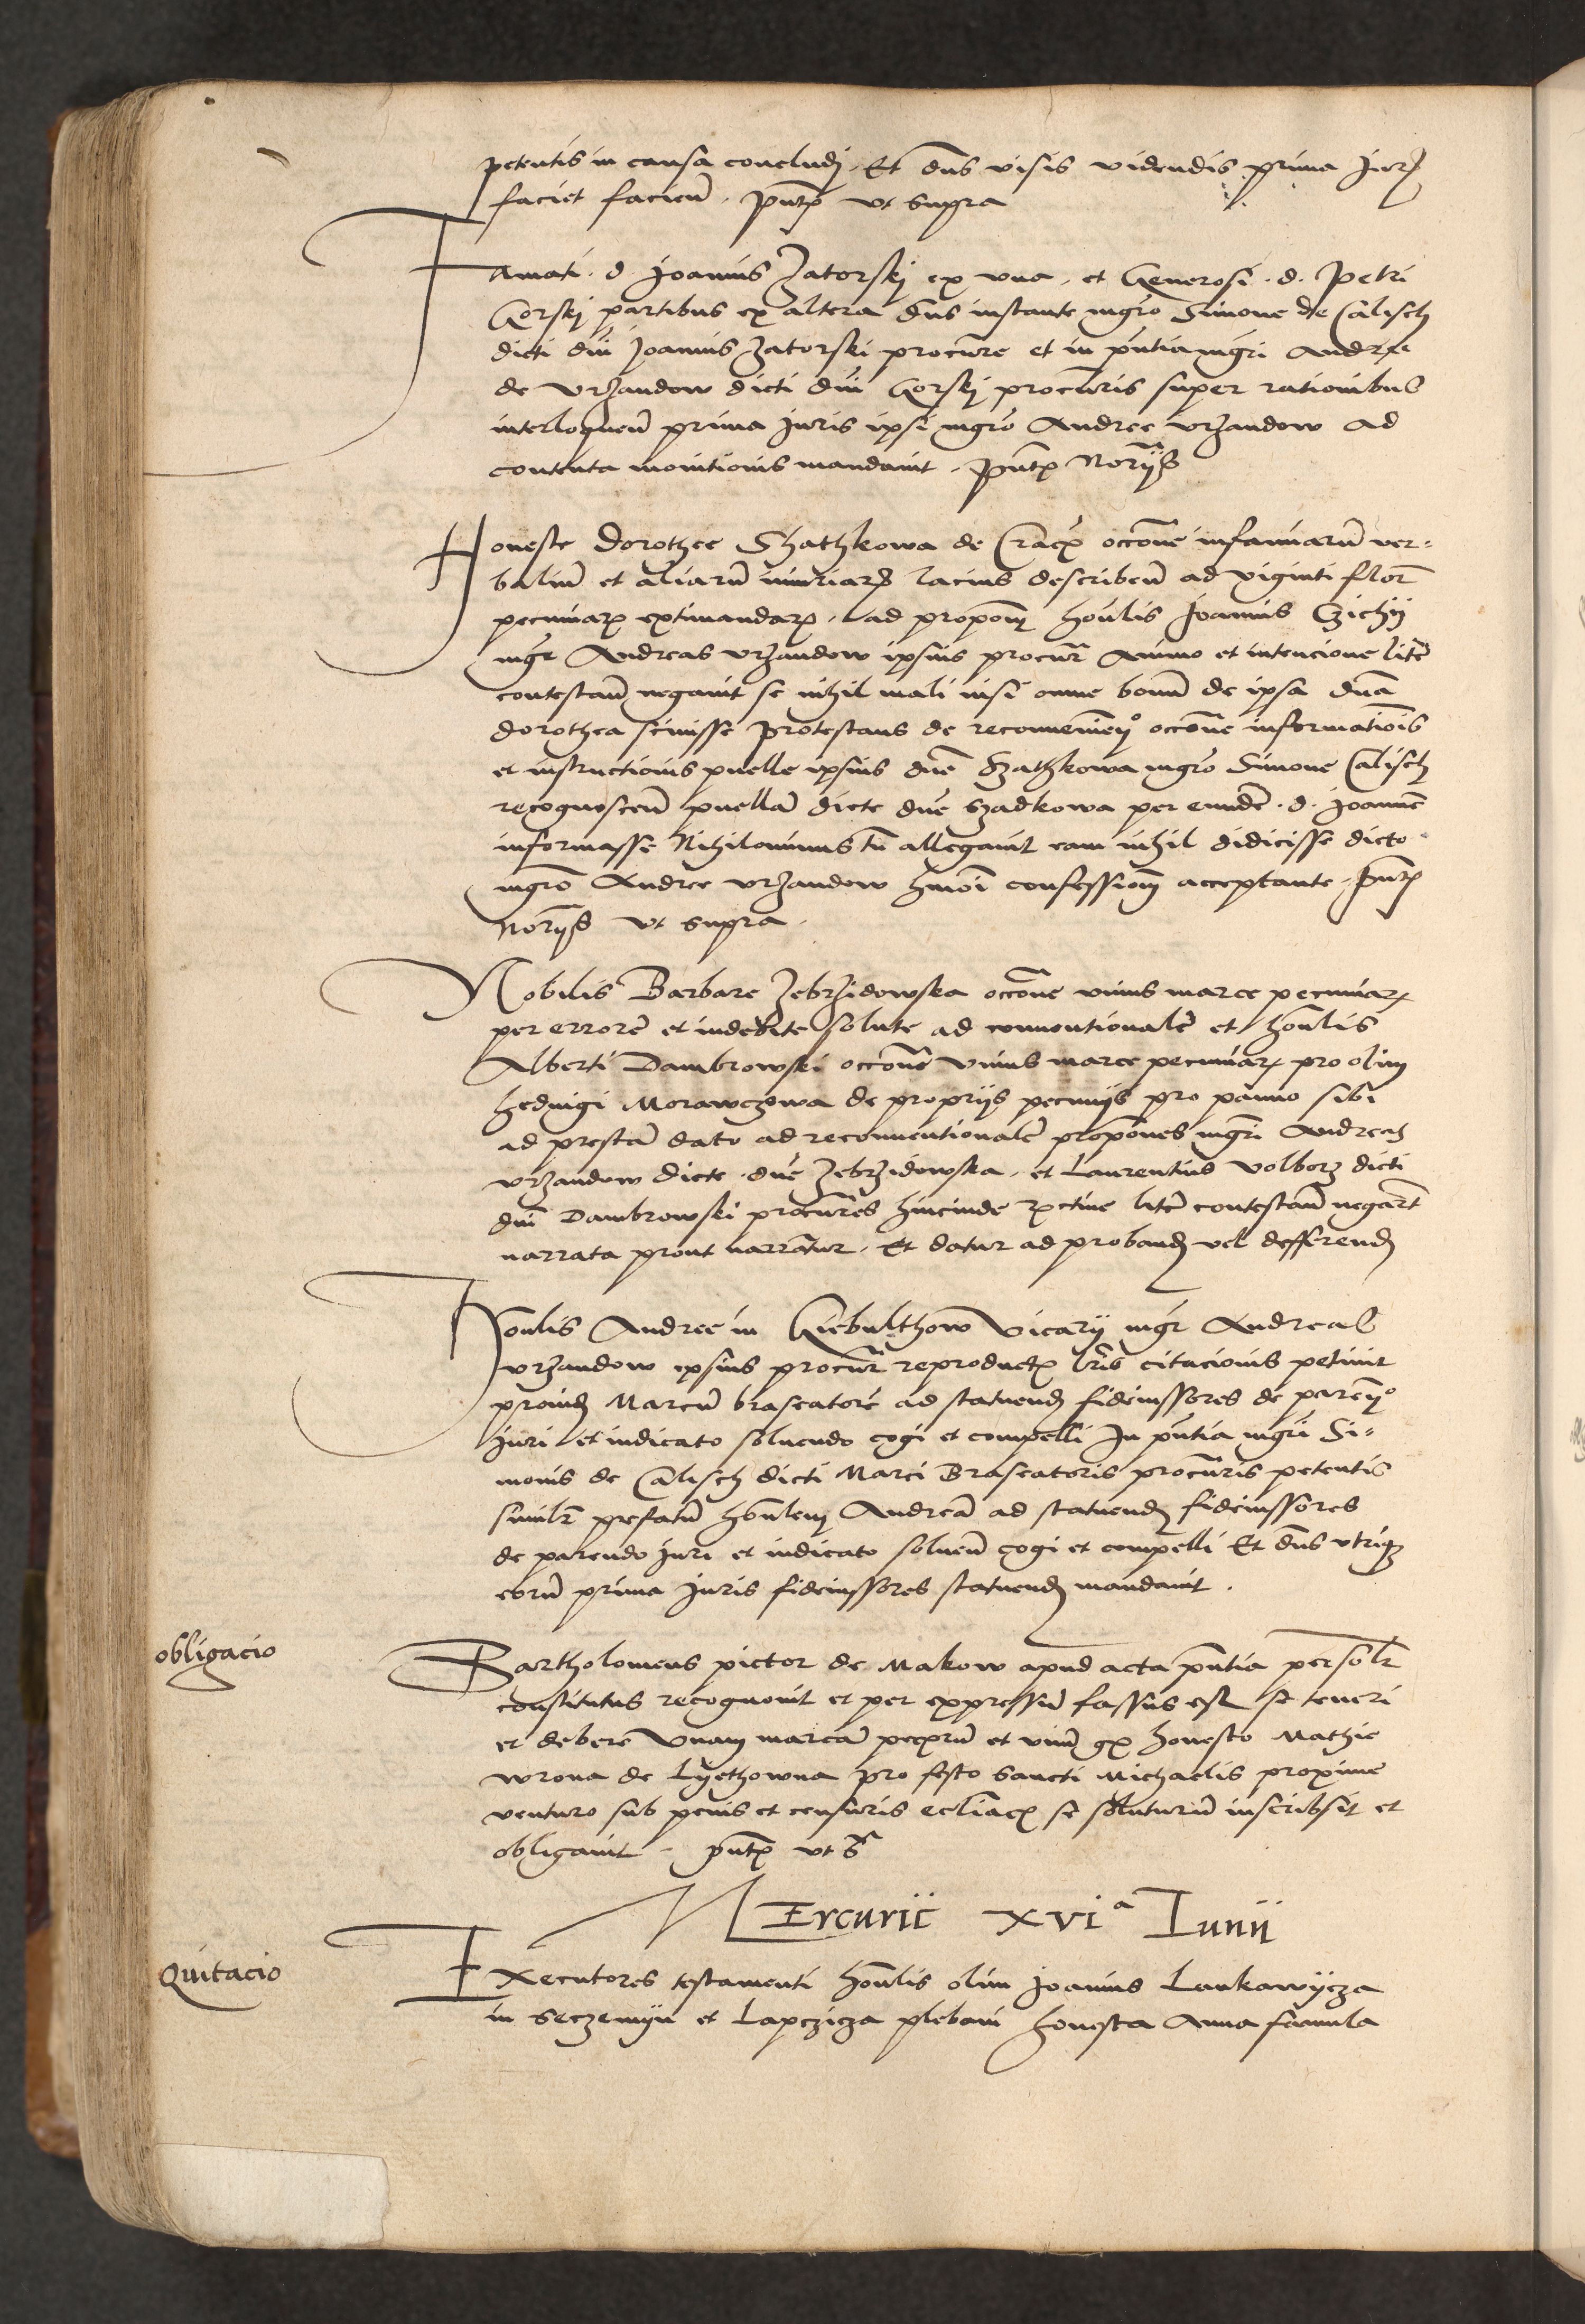 petentis in causa concludj. Et dns visis videndis prima Jur͛
faciet faciend͛. Pntꝫ vt supra
Famati. d. Joannis Zatorskj ex vna. et Generosi. d. Petri
Gorskj partibus ex altera dns instante mgro Simone de Calisch
dicti dni Joannis Zatorski procure et in pntia mgri Andree
de Vrzandow dicti dni Gorskj procuris super rationibus
interloquend͛ prima Juris ipsi mgro Andree vrzandow ad
contenta monitionis mandauit. Pntꝫ Norijs
Honeste Dorothee Shathkowa de Cracꝫ occone infamiarū ver=
baliū et aliarū iniuriarꝫ lacius describend͛ ad viginti flor
pecuniarꝫ extimandarꝫ. ad proponꝫ honlis Joannis Czichij
mgr Andreas vrzandow ipsius procur Animo et intencione litē
contestand͛ negauit se nihil mali nisi omne bonū de ipsa dna
dorothea scuisse Protestans de reconueniendo occone informationis
et instructionis puelle ipsius dne Szathkowa mgro Simone Calisch
recognoscen͛ puellā dicte dne szadkowa per eundē. d. Joannē
informasse Nihilominus tn allegauit eam nihil didicisse dicto
mgro Andree vrzandow hmoi confessionꝫ acceptante. Pntꝫ
Norijs vt supra.
Nobilis Barbare Zebrzidowska occone vnius marce pecuniarꝫ
per errorē et indebite solute ad conuentionalē et honlis
Alberti Dambrowski occone vnius marce pecuniarꝫ pro olim
heduigi Morawczowa de proprijs pecunijs pro panno sibi
ad prestan͛ dato ad reconuentionalē propones mgri Andreas
vrzandow dicte. dne Zebrzidowska. et Laurentius Volborz dicti
dni Dambrowski procures hincinde rxctiue litē contestand͛ negart
narrata prout narrantur. Et datur ad proband͛ vel defferend͛
Honlis Andree in Giebulthow Vicarij mgr Andreas
vrzandow ipsius procur reproductꝫ lris citacionis petiuit
prouid͛ Marcū braseatorē ad statuend͛ fideiussores de parendo
Juri et iudicato soluendo cogi et compelli In pntia mgri Si=
monis de Calisch dicti Marci Braseatoris procuris petentis
similr prefatū honlem Andreā ad statuend͛ fideiussores
de parendo Juri et iudicato soluend͛ cogi et compelli Et dns vtriqꝫ
eorū prima Juris fideiussores statuend͛ mandauit.
obligacio
Bartholomeus pictor de Makow apud acta pntia personlr
constitutus recognouit et per expressum fassus est se teneri
et debere Vnam marcā pecꝫrū et vnū gꝫ honesto Mathie
wrona de Lyethowna pro festo sancti Michaelis proxime
venturo sub penis et censuris eccliacꝫ se soluturū inscribsit et
obligauit. pntꝫ vt s
MErcurii xviᵃ Iunij
Quitacio
Executores testamenti honlis olim Joannis Lankawijcza
in seczemyn et Lapczicza plebani honesta Anna famula